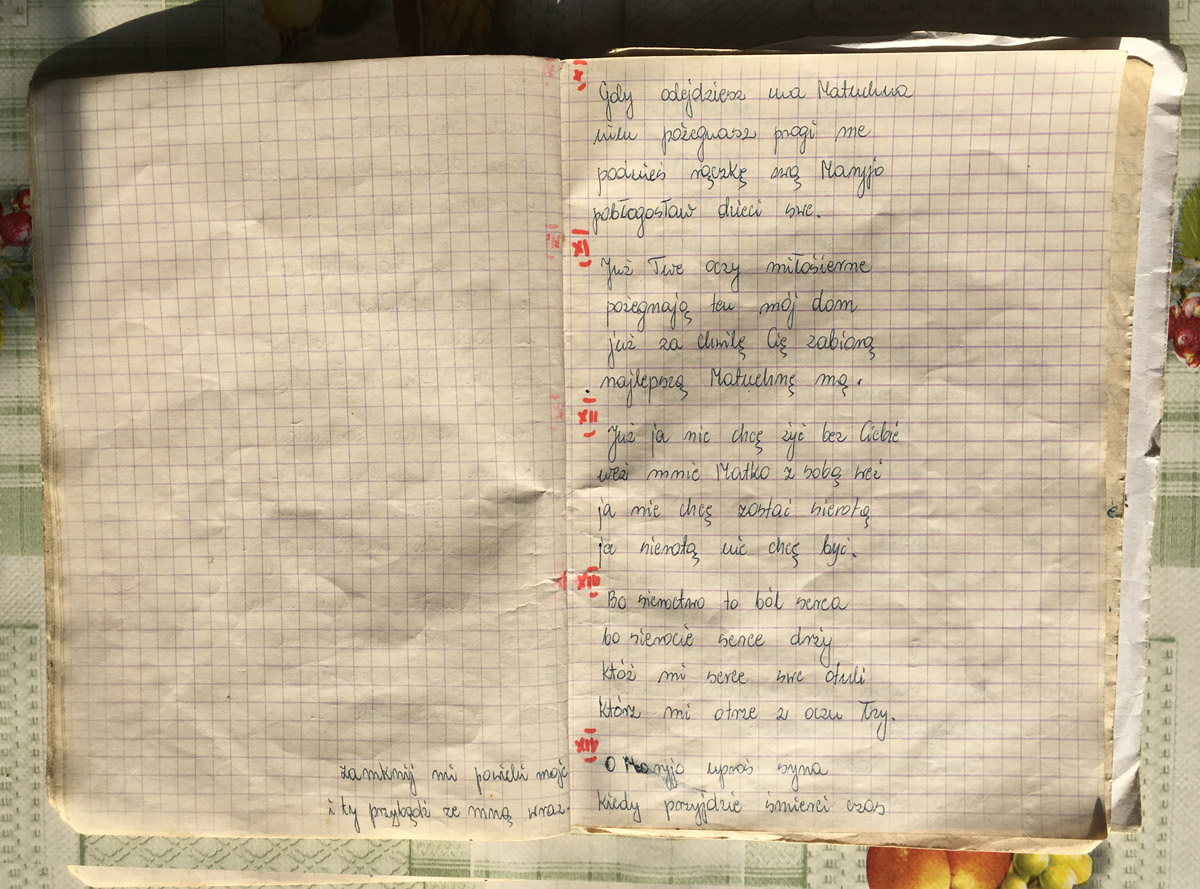 x.
Gdy odejdziesz ma Matuchna
milu pożegnasz progi me
podnieś rączkę swą Maryjo
pobłogosław dzieci swe.
xi
Już Twe oczy miłosierne
pożegnają ten mój dom
już za chwilę Cię zabiorą
najlepszą Matuchnę mą.
xii
Już ja nie chcę żyć bez Ciebie
weź mnie Matko z sobą weź
ja nie chcę zostać sierotą
ja sierotą nie chcę być.
xiii
Bo sieroctwo to ból serca
bo sierocie serce drży
któż mi serce swe otuli
którz mi otrze z oczu łzy.
xiv
O Maryjo uproś syna
kiedy przyjdzie śmierci czas
zamknij mi powieki moje
i ty przybądź ze mną wraz.